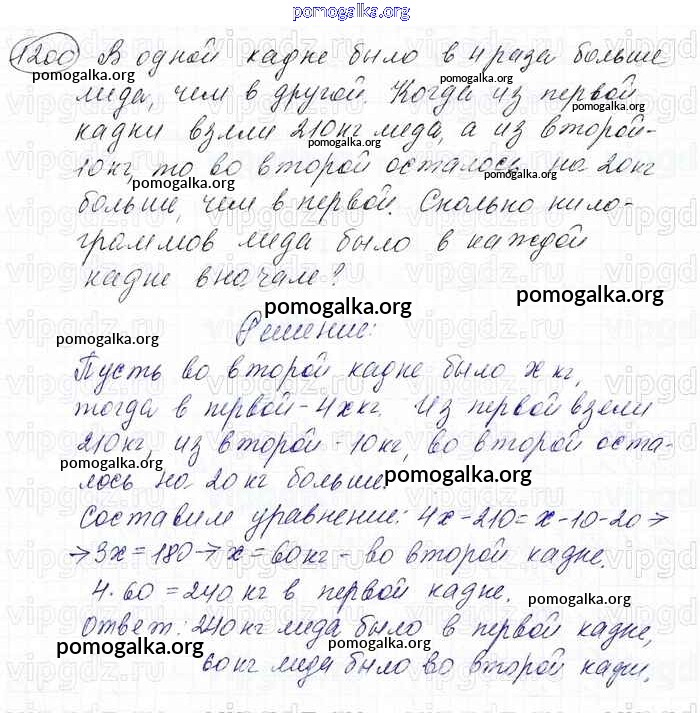 pomogalka.org
1200 В одной кадке было в 4 раза больше
pomogalka.org pomogalka.org
меда, чем в другой. Когда из первой
pomogalka.org
кадки взяли 210 кг меда, а из второй -
pomogalka.org
10 кг, то во второй осталось на 20 кг
pomogalka.org pomogalka.org
больше, чем в первой. Сколько кило-
граммов меда было в каждой
кадке вначале?
pomogalka.org pomogalka.org
Решение:
pomogalka.org
Пусть во второй кадке было x кг,
тогда в первой - 4x кг. Из первой взяли
210 кг, из второй - 10 кг, во второй оста-
pomogalka.org
лось на 20 кг больше.
pomogalka.org
Составим уравнение: 4x - 210 = x - 10 - 20 →
→ 3x = 180 → x = 60 кг - во второй кадке.
4 · 60 = 240 кг в первой кадке.
pomogalka.org
Ответ: 240 кг меда было в первой кадке,
pomogalka.org
60 кг меда было во второй кадке.
pomogalka.org pomogalka.org